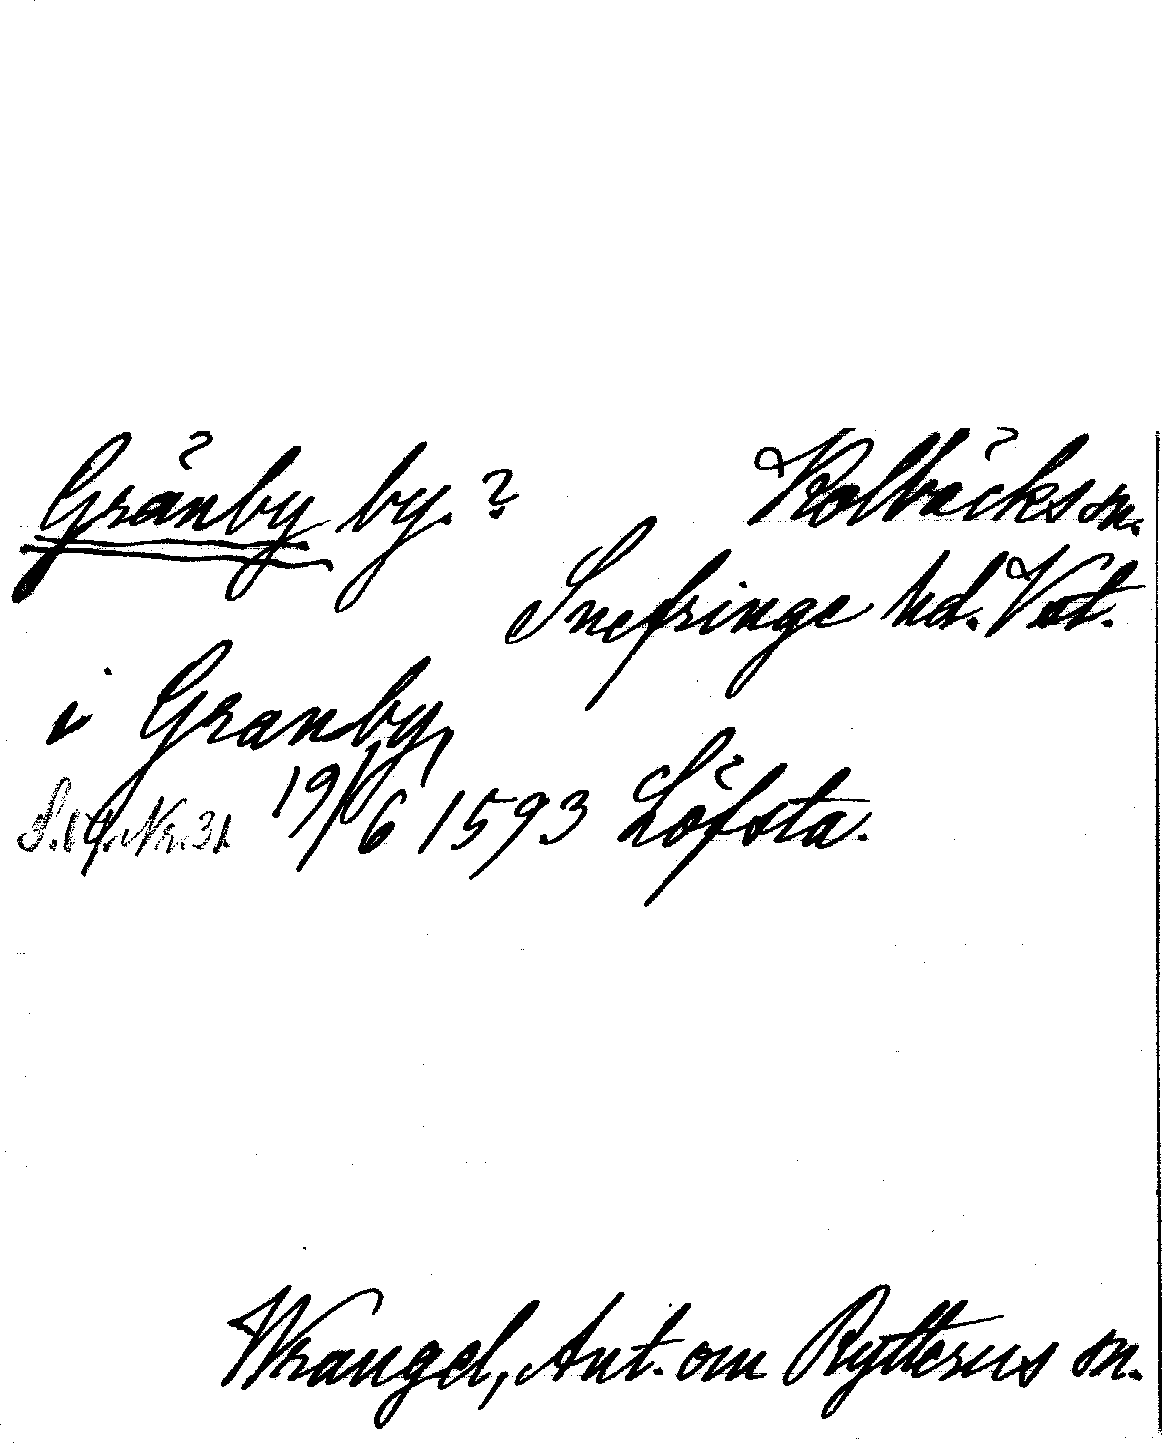 Gränby by.? Kolbäcks sn.
Snefringe hd. Vstl.
i Granby,
19/6 1593 Löfsta.
Wrangel, Ant. om Rytterns sn.